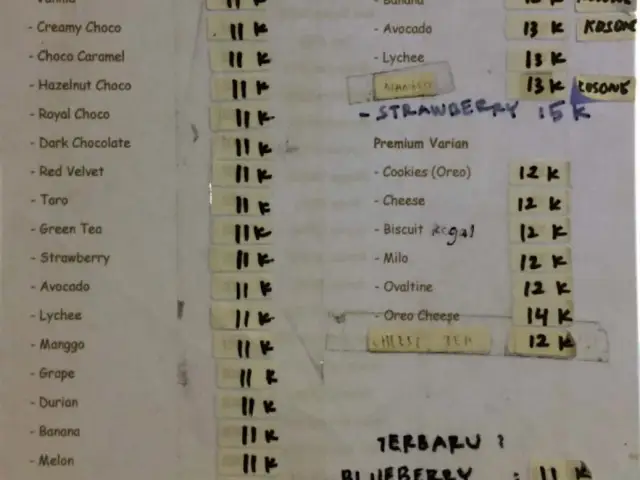 Vanilla 11 K
- Creamy Choco 11 K
- Choco Caramel 11 K
- Hazelnut Choco 11 K
- Royal Choco 11 K
- Dark Chocolate 11 K
- Red Velvet 11 K
- Taro 11 K
- Green Tea 11 K
- Strawberry 11 K
- Avocado 11 K
- Lychee 11 K
- Manggo 11 K
- Grape 11 K
- Durian 11 K
- Banana 11 K
- Melon 11 K
- Banana
- Avocado 13 K KOSONG
- Lychee 13 K
13 K KOSONG
- STRAWBERRY 15 K
Premium Varian
- Cookies (Oreo) 12 K
- Cheese 12 K
- Biscuit Regal 12 K
- Milo 12 K
- Ovaltine 12 K
- Oreo Cheese 14 K
12 K
TERBARU :
BLUEBERRY : 11 K